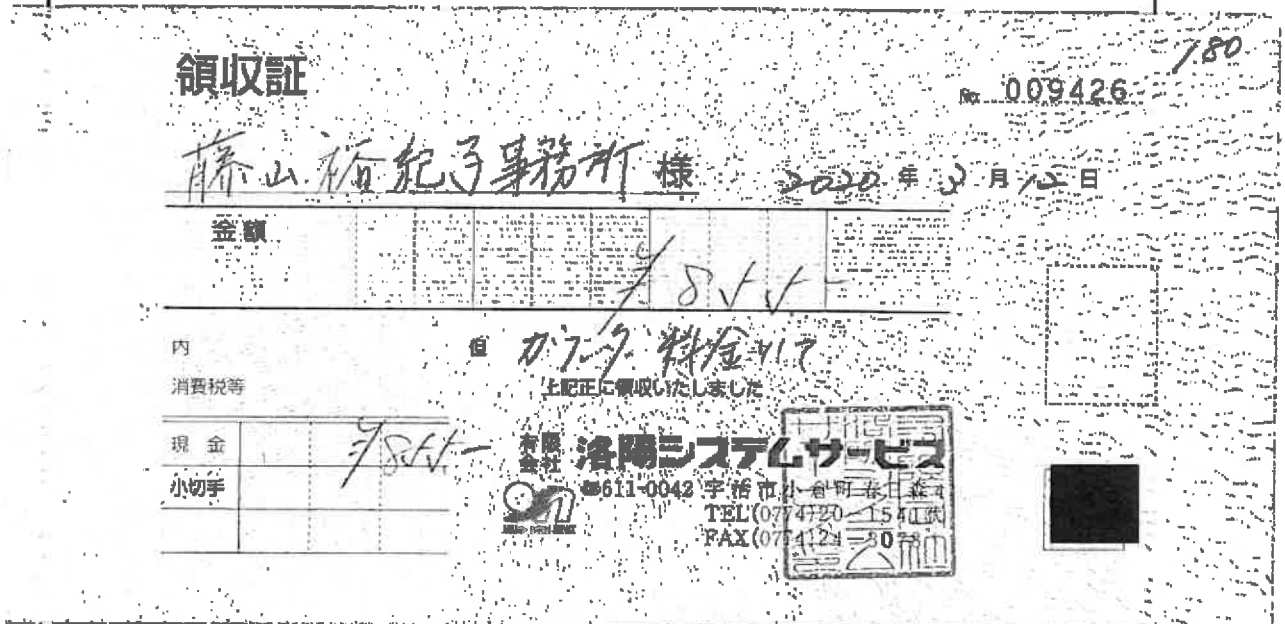 180
領収証
No. 009426
藤山裕紀子事務所 様 2020年3月12日
金額 ¥855-
内 但 カウンター料金として
消費税等
上記正に領収いたしました
現金 ¥855-
小切手
有限会社 洛陽システムサービス
〒611-0042 宇治市小倉町春日森
TEL(0774)20-1541
FAX(0774)21-